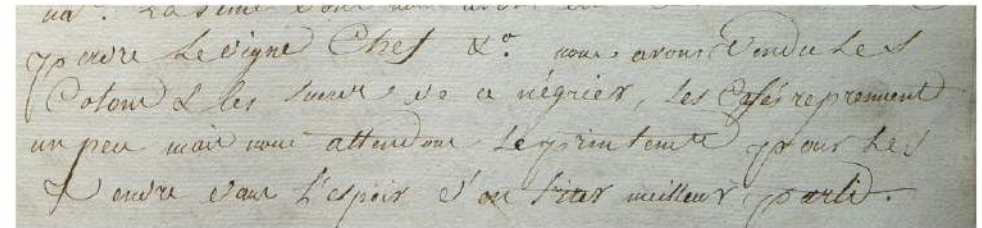 perdre Levigne Chef &.° nous avons Vendu Les
Cotons & les Sucres de ce négrier, Les Cafés reprennent
un peu mais nous attendons Le printems pour Les
Vendre dans L'espoir d'en tirer meilleur parti.